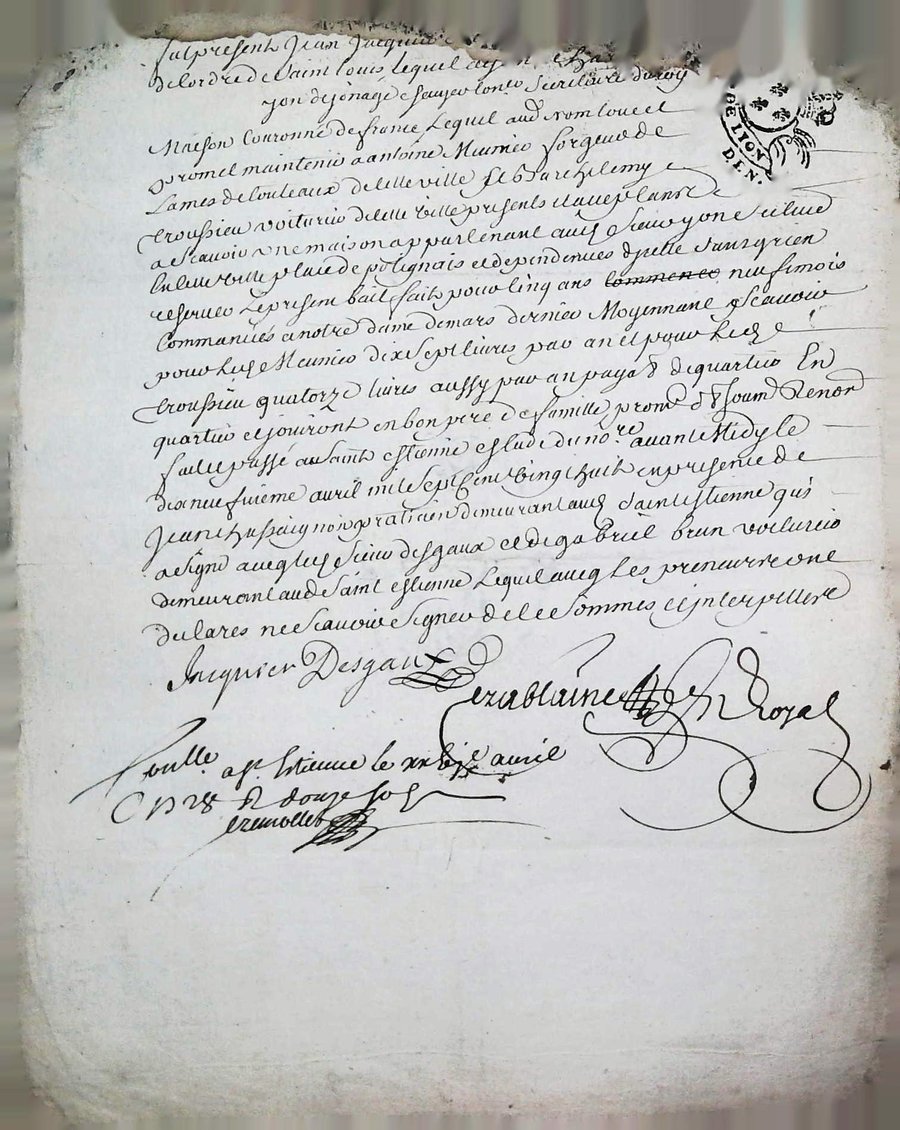 fut present Jean Jacquier
de lordre de Saint Louis, lequel ayant charge
yon de jonage Escuyer Coner Secretaire du roy
Maison Couronne de france Lequel aud. nom loue et
promet maintenir a antoine Meunier forgeur de
Lames de Couteaux de cette ville Et Barthelemy
Croussieu voiturier de cette ville presents et acceptants
a Scavoir Une maison appartenant aud. Sieur yon Scituee
En cette ville place de polignais et dependences dicelle Sans y rien
reserver Le present bail fait pour Cinq ans commence neuf mois
Commancés a notre dame de mars dernier Moyennant Scavoir
pour led. Meunier dix Sept livres par an et pour led.
Croussieu quatorze livres aussy par an payab de quartier En
quartier et jouiront en bon pere de famille, prom. Soum. Renon
fait et passé au Saint estienne estude du nore. avant Midy le
dix neufvieme avril mil Sept Cent vingt huit en presence de
Jean praticien demeurant aud. Saint Estienne qui
a Signé avec led. Sieur Desgaux et de gabriel brun voiturier
demeurant aud. Saint estienne Lequel avecq Les preneurs ont
declarés ne Scavoir Signer de ce Sommes et interpellere
Jacquier Desgaux
Royal
Conlle. a St. Etienne le avril
1728 R douze sols
DE LYON
D.E.N.